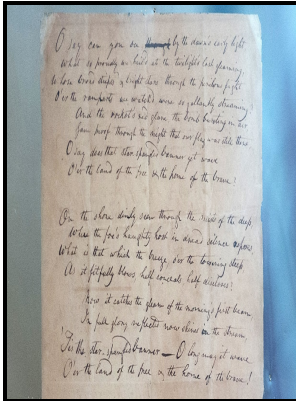 O say can you see by the dawn's early light
What so proudly we hail'd at the twilight's last gleaming,
Whose broad stripes & bright stars through the perilous fight
O'er the ramparts we watch'd were so gallantly streaming?
And the rocket's red glare, the bomb bursting in air
Gave proof through the night that our flag was still there
O say does that star-spangled banner yet wave
O'er the land of the free & the home of the brave?
On the shore dimly seen through the mists of the deep,
Where the foe's haughty host in dread silence reposes,
What is that which the breeze, o'er the towering steep,
As it fitfully blows, half conceals, half discloses?
Now it catches the gleam of the morning's first beam
In full glory reflected now shines in the stream
'Tis the star-spangled banner — O long may it wave
O'er the land of the free & the home of the brave!